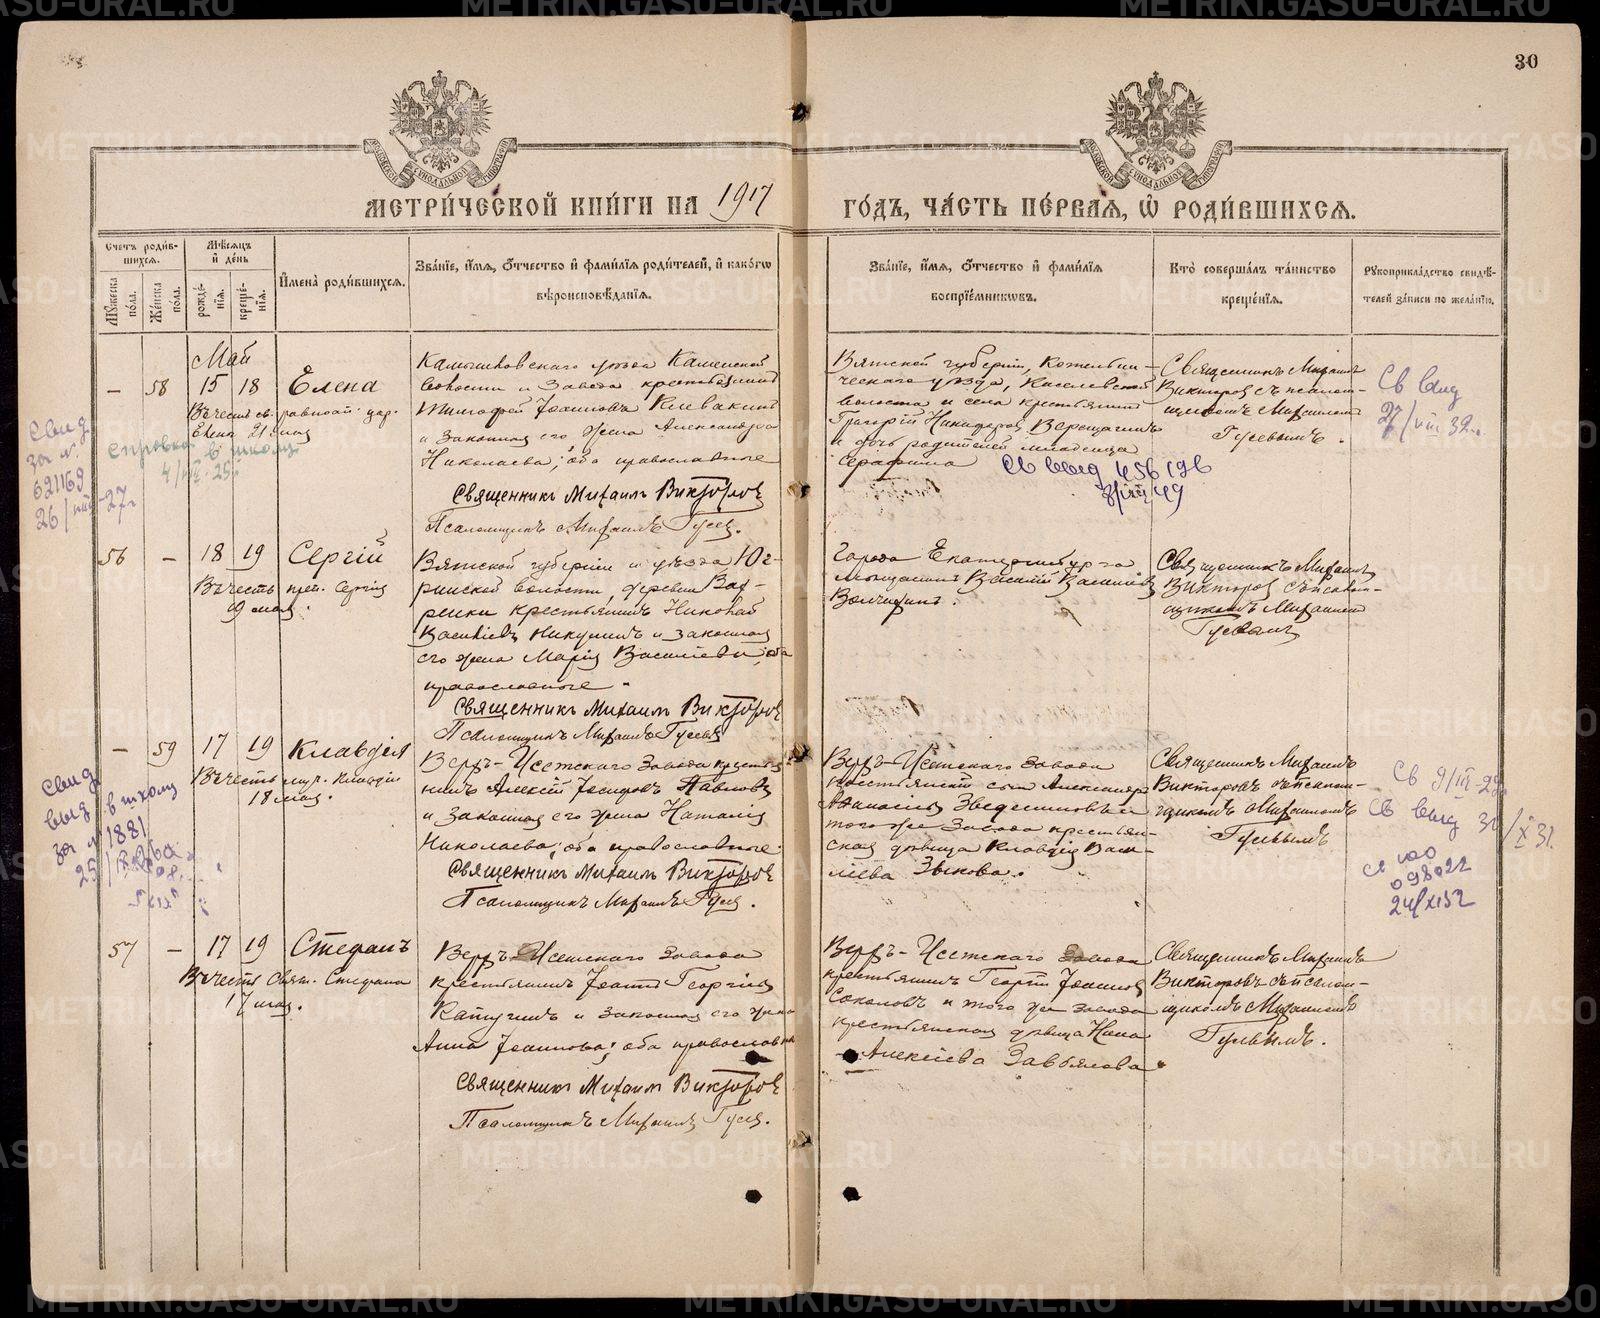 30
МЕТРИ́ЧЕСКОЙ КНИ́ГИ НА 1917
ГО́ДЪ, ЧА́СТЬ ПЕ́РВАЯ, Ѡ҆ РОДИ́ВШИХСЯ.
Счетъ роди́в-
шихся.
Мѣ́сяцъ
и҆ де́нь
Мꙋ́жеска по́ла.
Же́нска по́ла.
рожде́-
нїя.
креще́-
нїя.
И҆мена̀ роди́вшихся.
Зва́нїе, и҆́мя, ѻ҆́тчество и҆ фами́лїя роди́телей, и҆ како́гѡ
вѣроисповѣ́данїя.
Зва́нїе, и҆́мя, ѻ҆́тчество и҆ фами́лїя
воспрїе́мникѡвъ.
Кто̀ соверша́лъ та́инство
креще́нїя.
Рꙋкоприкла́дство свидѣ́-
телей за́писи по жела́нїю.
Май
— 58 15 18 Елена
Въ честь св. равноап. цар.
Елены 21 мая
Камышловскаго уѣзда Каменской
волости и завода крестьянинъ
Тимофей Іоанновъ Клевакинъ
и законная его жена Александра
Николаева; оба православные
Священникъ Михаилъ Викторов
Псаломщикъ Михаилъ Гусев.
Вятской губерніи, Котельни-
ческаго уѣзда, Киселевской
волости и села крестьянинъ
Григорій Никифоров Верещагинъ
и дочь родителей младенца
Серафима
Св выд 456196
8/VIII 49
Священникъ Михаилъ
Викторов съ псалом-
щикомъ Михаиломъ
Гусевымъ.
Св выд
27/VIII 32 г.
свид.
за №.
621169
26/VIII-27 г
справка в школу
25 г.
56 — 18 19 Сергій
Въ честь преп. Сергія
19 мая.
Вятской губерніи и уѣзда Юг-
ринской волости, деревни
крестьянинъ Николай
Васильевъ Никулинъ и законная
его жена Марія Васильева; оба
православные.
Священникъ Михаилъ Викторов
Псаломщикъ Михаилъ Гусевъ
Города Екатеринбурга
мѣщанинъ Василій Васильев
Священникъ Михаилъ
Викторов съ псалом-
щикомъ Михаиломъ
Гусевымъ
— 59 17 19 Клавдія
Въ честь муч. Клавдіи
18 мая.
Верхъ-Исетскаго завода крестья-
нинъ Алексій Павловъ
и законная его жена Наталія
Николаева; оба православные.
Священникъ Михаилъ Викторов
Псаломщикъ Михаилъ Гусев.
Верхъ-Исетскаго завода
крестьянскій сынъ Александръ
Аѳанасьев и
того же завода крестьян-
ская дѣвица Клавдія Васи-
льева Зыкова.
Священникъ Михаилъ
Викторовъ съ псалом-
щикомъ Михаиломъ
Гусевымъ
свид
выд в школу
за № 1881
25/
Св 9/III-29
Св выд 31/X 31.
св юо
098022
24/XI 52
57 — 17 19 Стефанъ
Въ честь Свят. Стефана
17 мая.
Верхъ-Исетскаго завода
крестьянинъ Іоаннъ Георгіев
и законная его жена
Анна Іоаннова; оба православные
Священникъ Михаилъ Викторов
Псаломщикъ Михаилъ Гусев.
Верхъ-Исетскаго завода
крестьянинъ Георгій Іоаннов
Соколовъ и того же завода
крестьянская дѣвица Нина
Алексіева Завьялова.
Священникъ Михаилъ
Викторовъ съ псалом-
щикомъ Михаиломъ
Гусевымъ.
METRIKI.GASO-URAL.RU